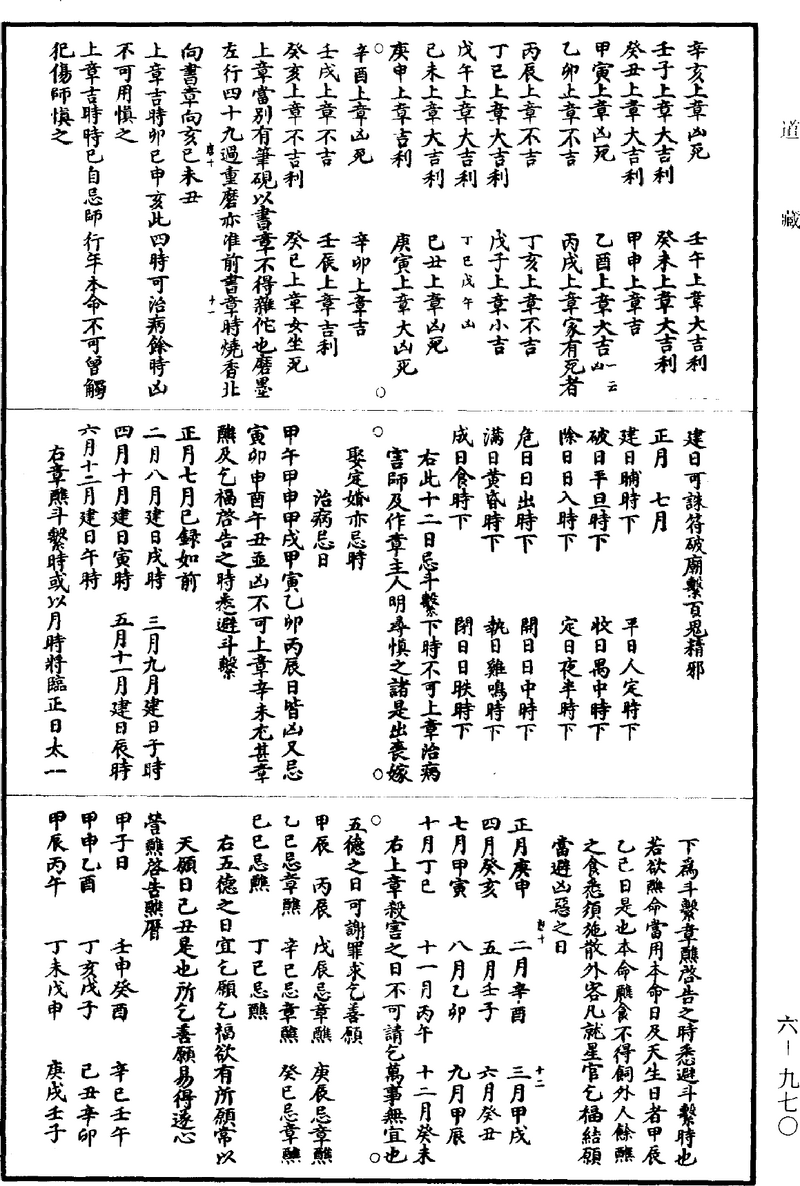 道藏
辛亥上章凶死　壬午上章大吉利
壬子上章大吉利　癸未上章大吉利
癸丑上章大吉利　甲申上章吉
甲寅上章凶死　乙酉上章大吉一云凶
乙卯上章不吉　丙戌上章家有死者
丙辰上章不吉　丁亥上章不吉
丁巳上章大吉利　戊子上章小吉
戊午上章大吉利　丁巳戊午凶
己未上章大吉利　己丑上章凶死
庚申上章吉利　庚寅上章大凶死
辛酉上章凶死　辛卯上章吉
壬戌上章不吉　壬辰上章吉利
癸亥上章不吉利　癸巳上章女坐死
上章當別有筆硯以書章不得雜佗也磨墨
左行四十九過重磨亦准前書章時燒香北
向書章向亥巳未丑
上章吉時卯巳申亥此四時可治病餘時凶
不可用慎之
上章吉時時巳自忌師行年本命不可曾觸
犯傷師慎之
建日可誅符破廟繫百鬼精邪
正月　七月
建日晡時下　平日人定時下
破日平旦時下　收日禺中時下
除日日入時下　定日夜半時下
危日日出時下　開日日中時下
滿日黃昏時下　執日雞鳴時下
成日食時下　閉日日昳時下
右此十二日忌斗繫下時不可上章治病
害師及作章主人明尋慎之諸是出喪嫁
娶定婚亦忌時
治病忌日
甲午甲申甲戌甲寅乙卯丙辰日皆凶又忌
寅卯申酉午丑並凶不可上章辛未尤甚章
醮及乞福啓告之時悉避斗繫
正月七月已録如前
二月八月建日戌時　三月九月建日子時
四月十月建日寅時　五月十一月建日辰時
六月十二月建日午時
右章醮斗繫時或以月時將臨正日太一
下為斗繫章醮啓告之時悉避斗繫時也
若欲醮命當用本命日及天生日者甲辰
乙巳日是也本命醮食不得飼外人餘醮
之食悉須施散外客凡就星官乞福結願
當避凶惡之日
正月庚申　二月辛酉　三月甲戌
四月癸亥　五月壬子　六月癸丑
七月甲寅　八月乙卯　九月甲辰
十月丁巳　十一月丙午　十二月癸未
右上章殺害之日不可請乞萬事無宜也
五德之日可謝罪求乞善願
甲辰　丙辰　戊辰忌章醮　庚辰忌章醮
乙巳忌章醮　辛巳忌章醮　癸巳忌章醮
己巳忌醮　丁巳忌醮
右五德之日宜乞願乞福欲有所願常以
天願日己丑是也所乞善願易得遂心
營醮啓告醮曆
甲子日　壬申癸酉　辛巳壬午
甲申乙酉　丁亥戊子　己丑辛卯
甲辰丙午　丁未戊申　庚戌壬子
六－九七〇